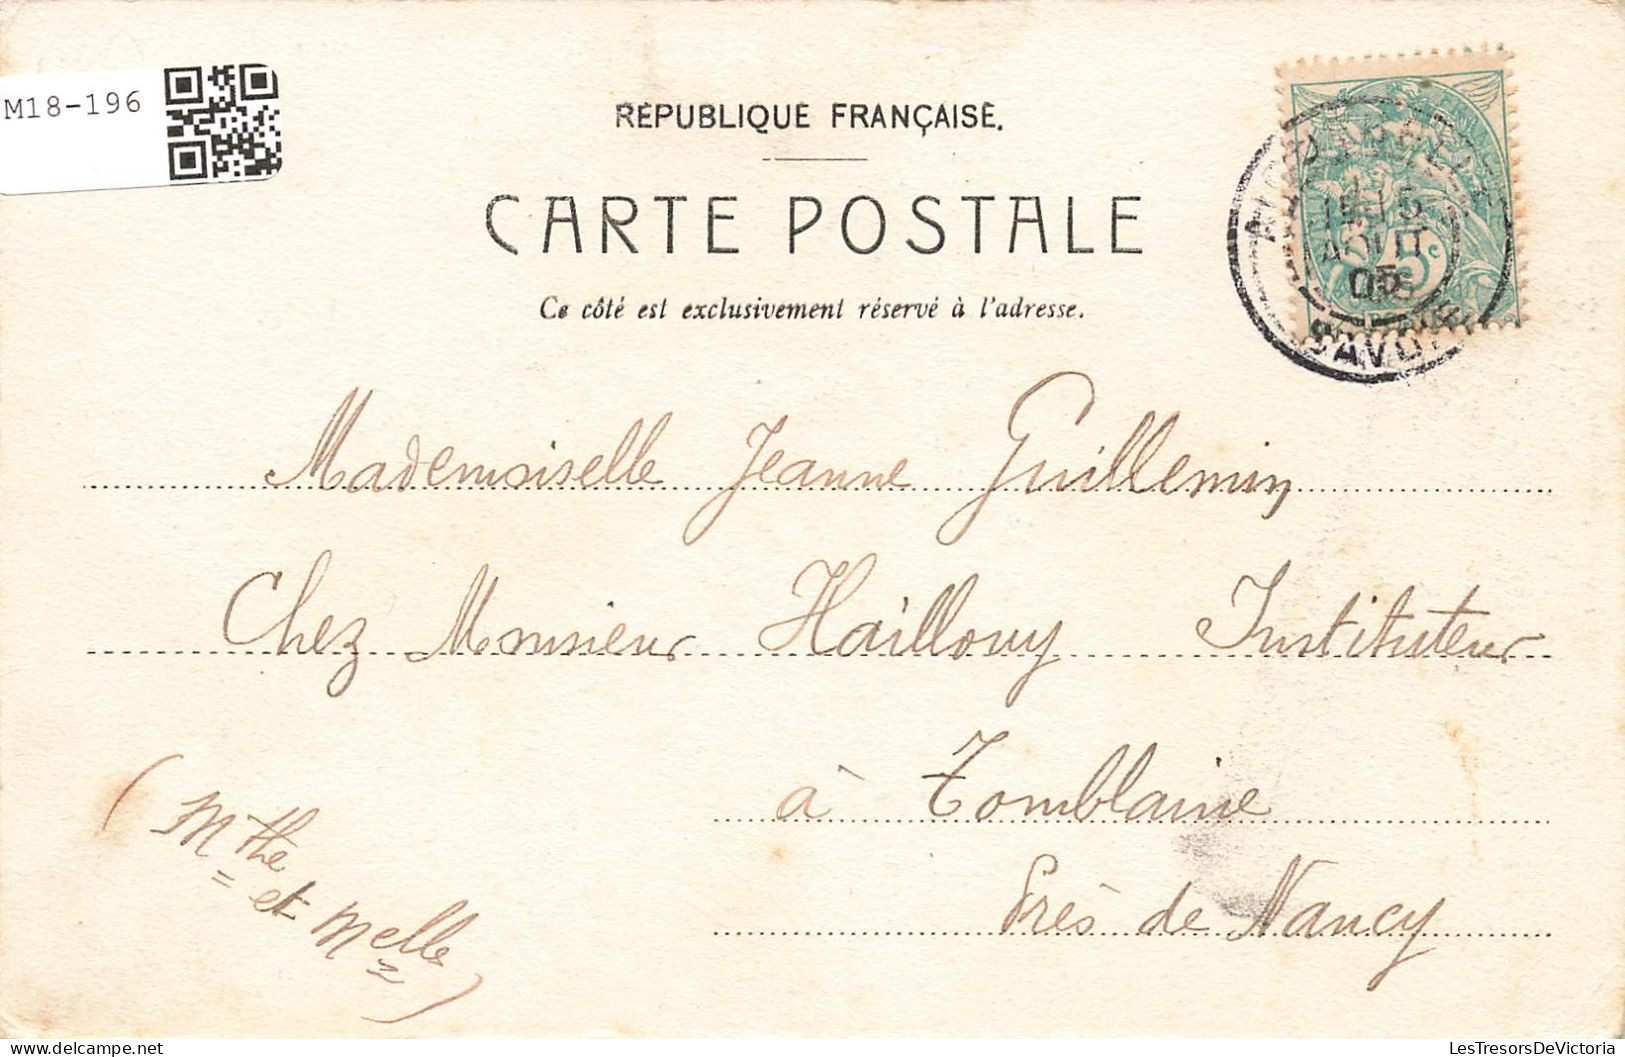 M18-196
RÉPUBLIQUE FRANÇAISE.
CARTE POSTALE
Ce côté est exclusivement réservé à l'adresse.
15
AOUT
05
SAVOIE
5c
Mademoiselle Jeanne Guillemin
Chez Monsieur Haillouy Instituteur
à Tomblaine
Près de Nancy
(Mthe
et Melle)
delcampe.net
LesTresorsDeVictoria